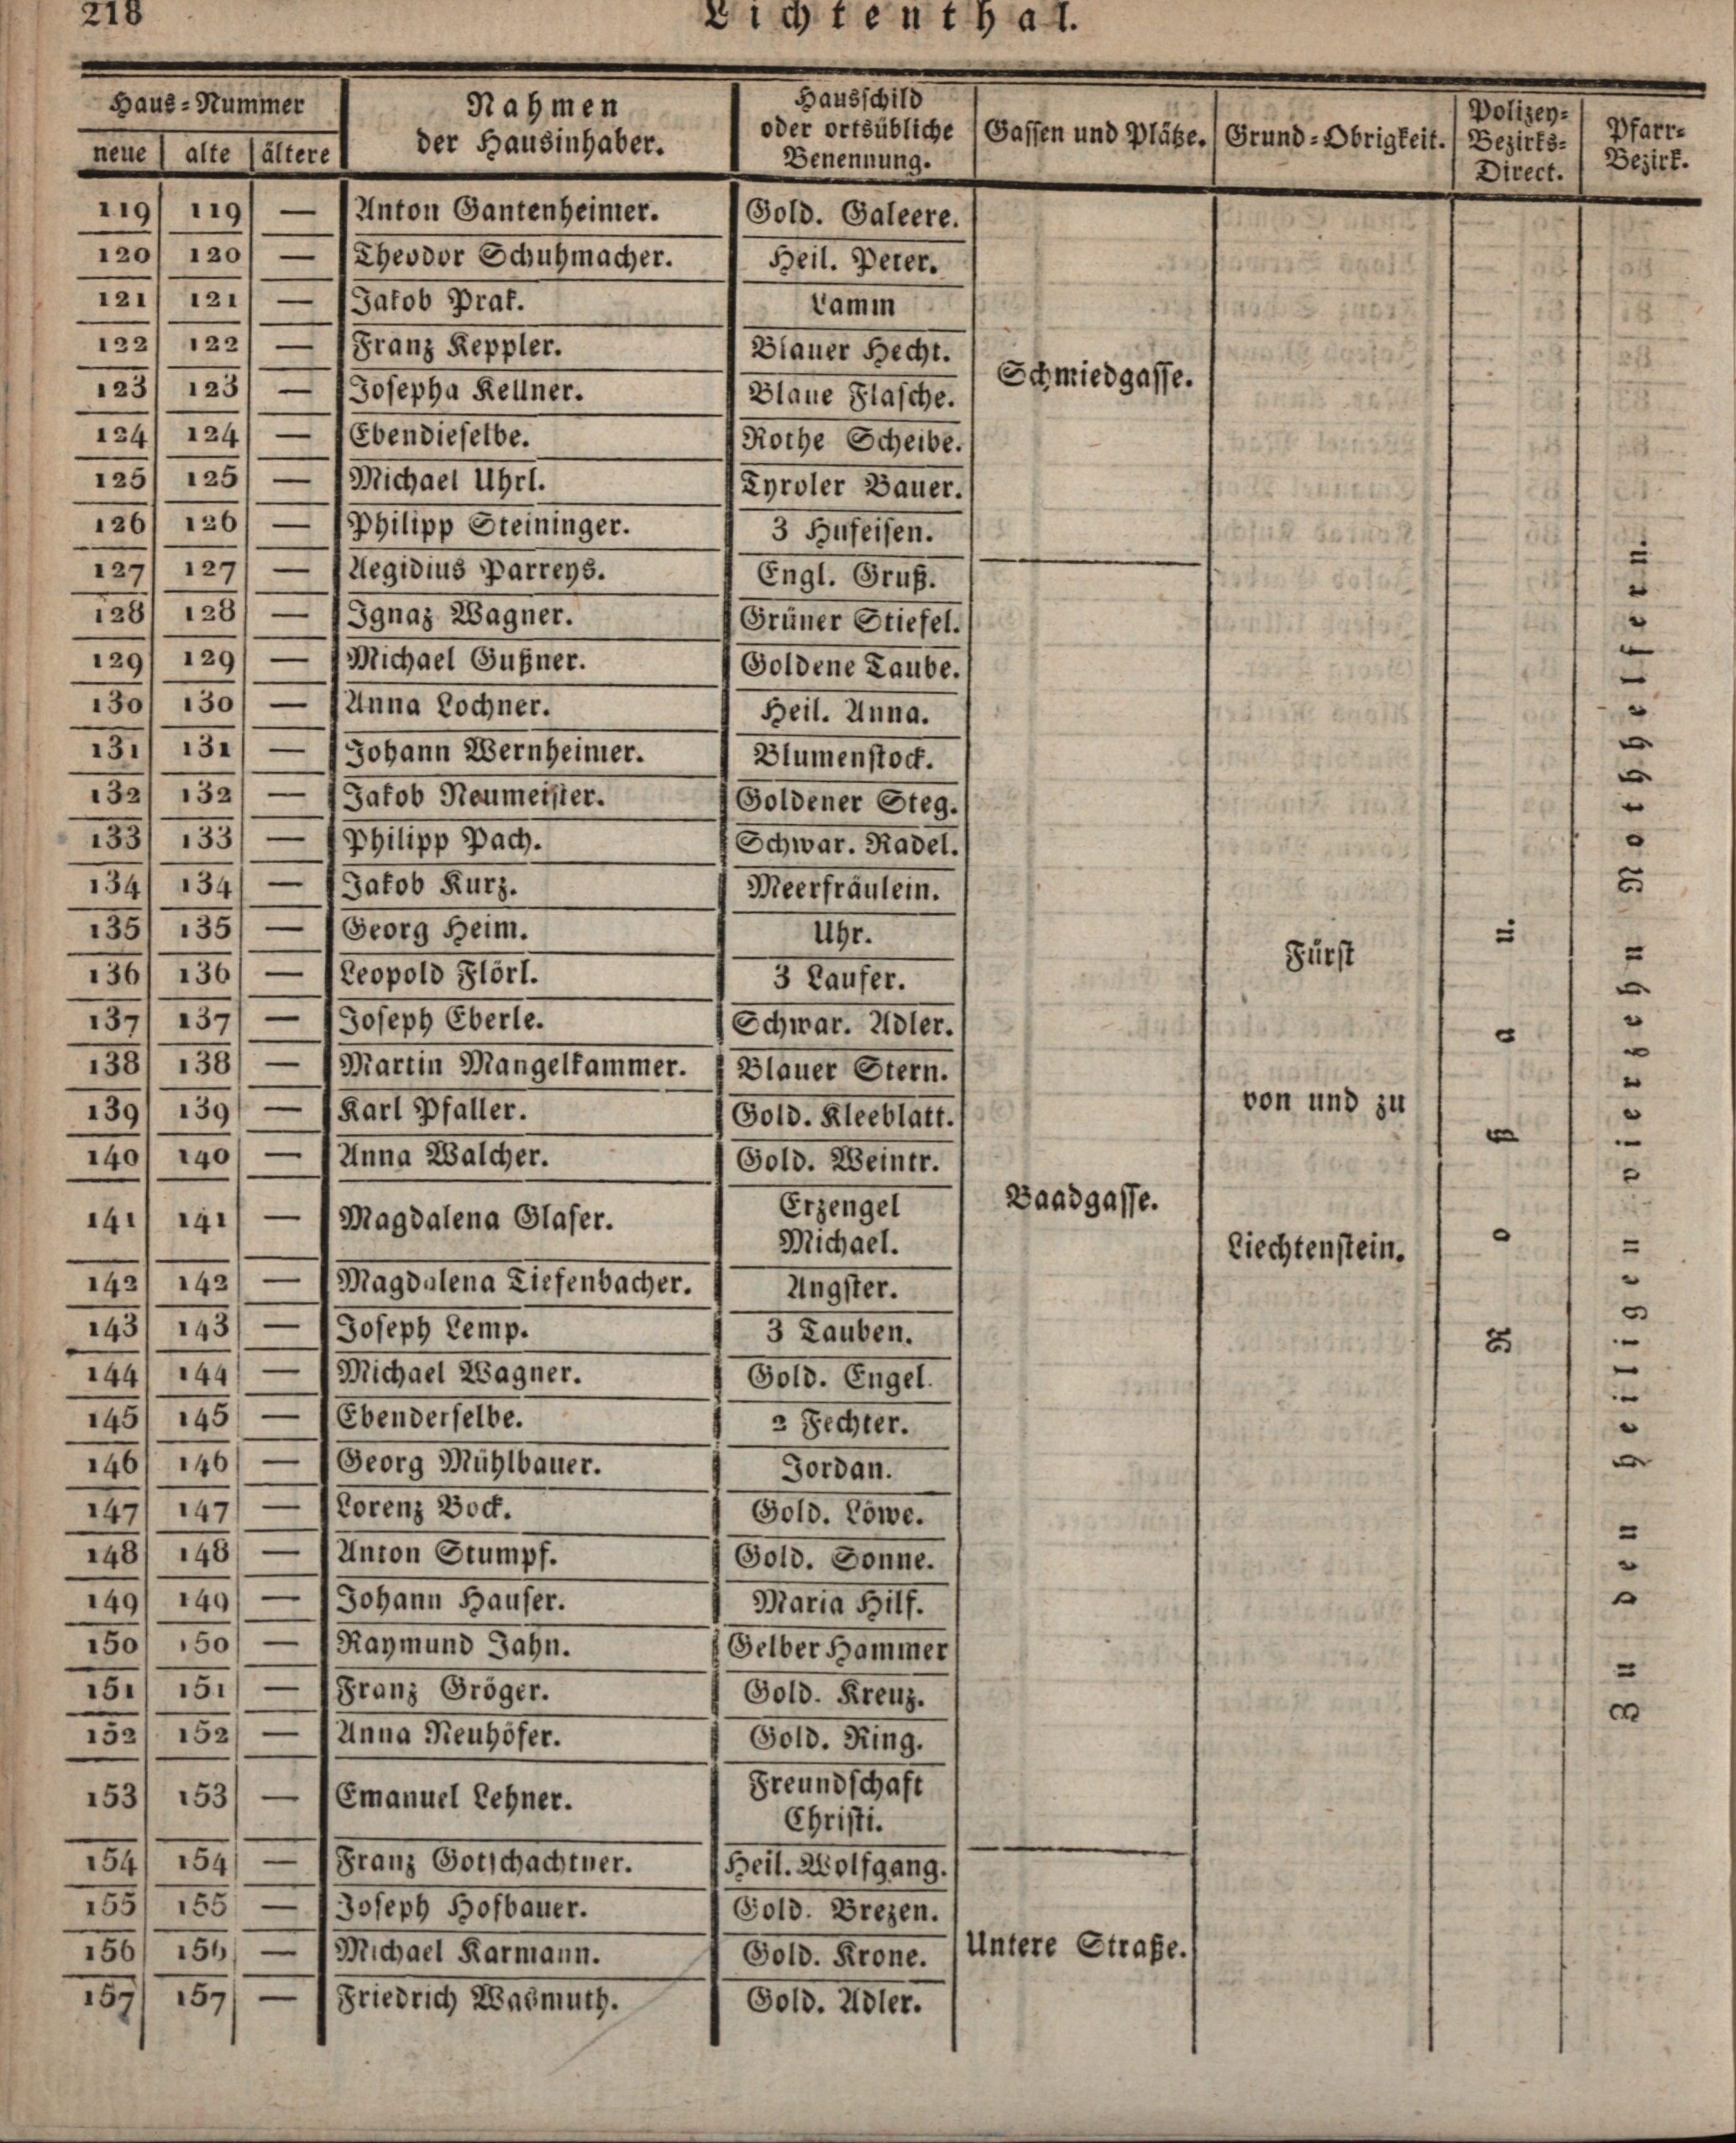 218
Lichtenthal.
Haus-Nummer
neue alte ältere
Nahmen
der Hausinhaber.
Hausschild
oder ortsübliche
Benennung.
Gassen und Plätze.
Grund-Obrigkeit.
Polizey-
Bezirks-
Direct.
Pfarr-
Bezirk.
119 119 — Anton Gantenheimer. Gold. Galeere.
120 120 — Theodor Schuhmacher. Heil. Peter.
121 121 — Jakob Prak. Lamm
122 122 — Franz Keppler. Blauer Hecht.
123 123 — Josepha Kellner. Blaue Flasche.
Schmiedgasse.
124 124 — Ebendieselbe. Rothe Scheibe.
125 125 — Michael Uhrl. Tyroler Bauer.
126 126 — Philipp Steininger. 3 Hufeisen.
127 127 — Aegidius Parreys. Engl. Gruß.
128 128 — Ignaz Wagner. Grüner Stiefel.
129 129 — Michael Gußner. Goldene Taube.
130 130 — Anna Lochner. Heil. Anna.
131 131 — Johann Wernheimer. Blumenstock.
132 132 — Jakob Neumeister. Goldener Steg.
133 133 — Philipp Pach. Schwar. Radel.
134 134 — Jakob Kurz. Meerfräulein.
135 135 — Georg Heim. Uhr.
136 136 — Leopold Flörl. 3 Laufer.
137 137 — Joseph Eberle. Schwar. Adler.
138 138 — Martin Mangelkammer. Blauer Stern.
139 139 — Karl Pfaller. Gold. Kleeblatt.
140 140 — Anna Walcher. Gold. Weintr.
141 141 — Magdalena Glaser. Erzengel
Michael.
Baadgasse.
142 142 — Magdalena Tiefenbacher. Angster.
143 143 — Joseph Lemp. 3 Tauben.
144 144 — Michael Wagner. Gold. Engel.
145 145 — Ebenderselbe. 2 Fechter.
146 146 — Georg Mühlbauer. Jordan.
147 147 — Lorenz Bock. Gold. Löwe.
148 148 — Anton Stumpf. Gold. Sonne.
149 149 — Johann Hauser. Maria Hilf.
150 150 — Raymund Jahn. Gelber Hammer
151 151 — Franz Gröger. Gold. Kreuz.
152 152 — Anna Neuhöfer. Gold. Ring.
153 153 — Emanuel Lehner. Freundschaft
Christi.
154 154 — Franz Gotschachtner. Heil. Wolfgang.
155 155 — Joseph Hofbauer. Gold. Brezen.
156 156 — Michael Karmann. Gold. Krone.
Untere Straße.
157 157 — Friedrich Wasmuth. Gold. Adler.
Fürst
von und zu
Liechtenstein.
Roßau.
Zu den heiligen vierzehn Nothhelfern.